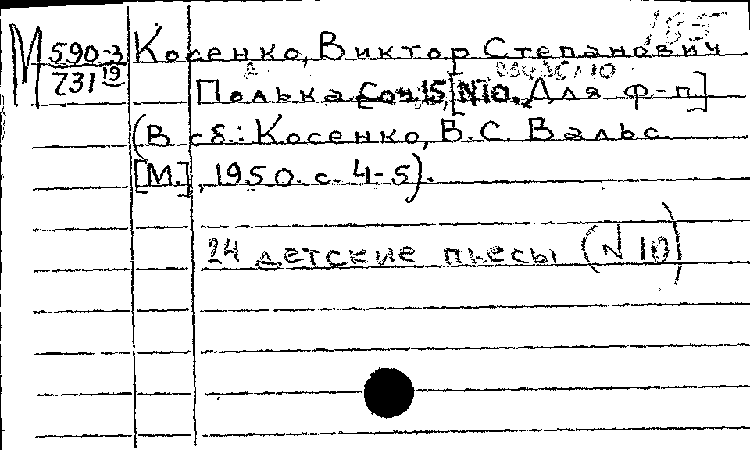 165
М 590-3 Косенко, Виктор Степанович
731 19
Полька Соч. 15, [N 10. Для ф-п]
(В сб.: Косенко, В.С. Вальс.
[М.], 1950. с. 4-5).
24 детские пьесы (N 10)